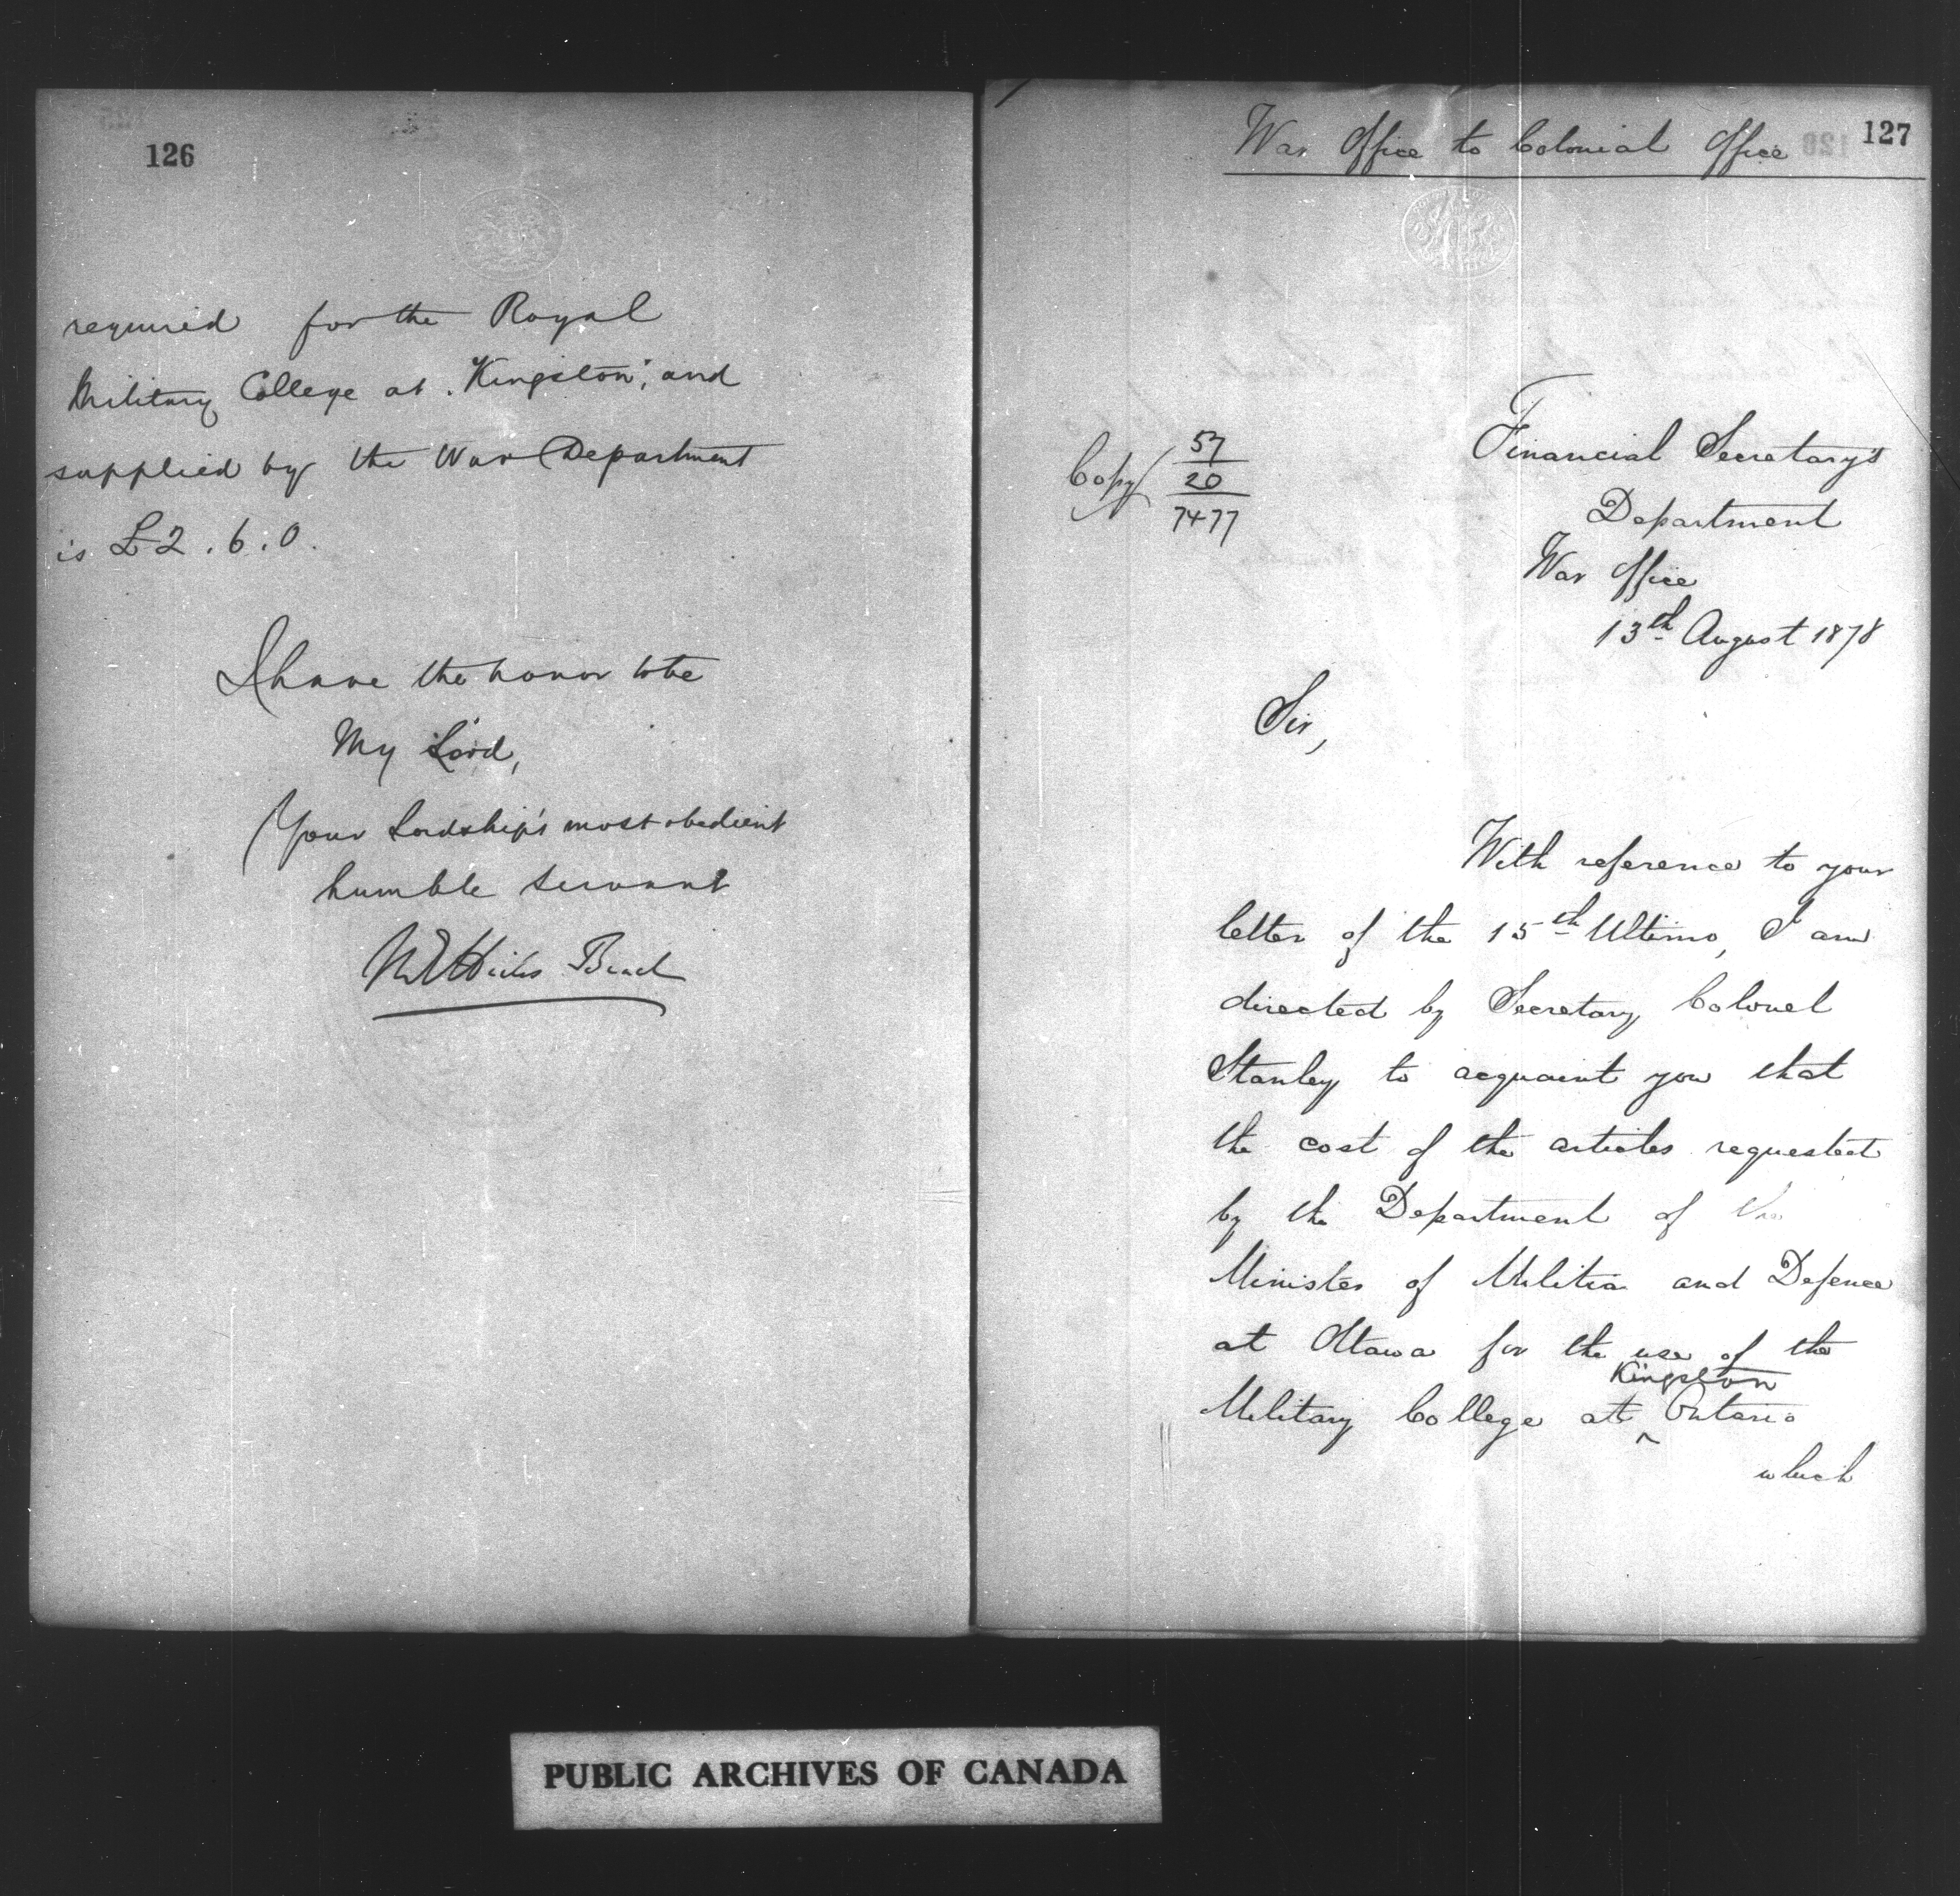 126
required for the Royal
Military College at Kingston, and
supplied by the War Department
is £2.6.0.
I have the honor to be
My Lord,
Your Lordship's most obedient
humble servant
M E Hicks Beach
War Office to Colonial Office
127
Copy
57
20
7477
Financial Secretary's
Department
War Office
13th August 1878
Sir,
With reference to your
letter of the 15th Ultimo, I am
directed by Secretary Colonel
Stanley to acquaint you that
the cost of the articles requested
by the Department of the
Minister of Militia and Defence
at Ottawa for the use of the
Kingston
Military College at ^ Ontario
which
PUBLIC ARCHIVES OF CANADA